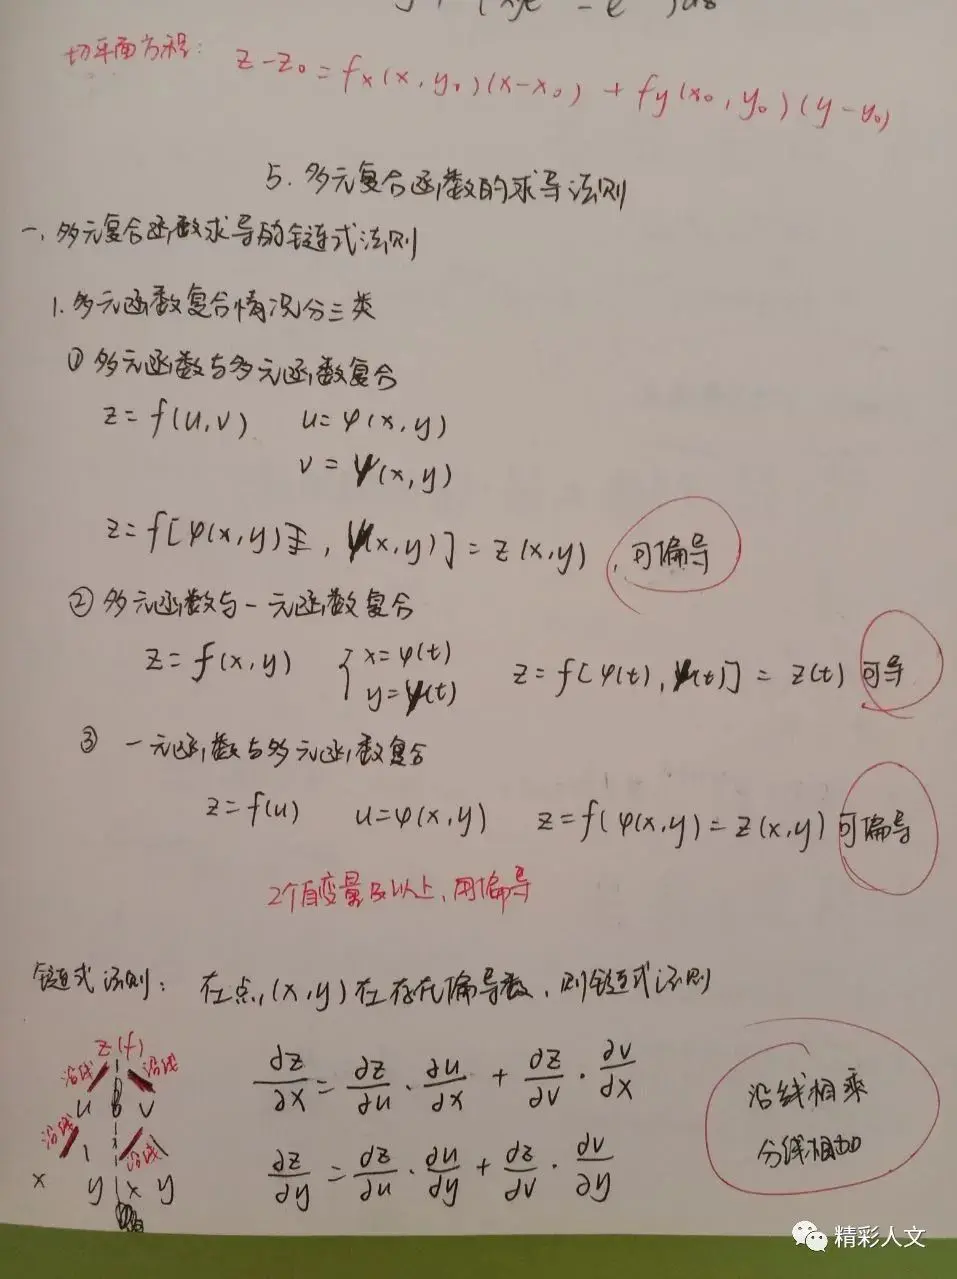 切平面方程: z-z₀=fx(x,y₀)(x-x₀)+fy(x₀,y₀)(y-y₀)
5.多元复合函数的求导法则
一.多元复合函数求导的链式法则
1.多元函数复合情况分三类
① 多元函数与多元函数复合
z=f(u,v) u=φ(x,y)
v=ψ(x,y)
z=f[φ(x,y),ψ(x,y)]=z(x,y),可偏导
② 多元函数与一元函数复合
z=f(x,y) { x=φ(t)
y=ψ(t) z=f[φ(t),ψ(t)]=z(t) 可导
③ 一元函数与多元函数复合
z=f(u) u=φ(x,y) z=f(φ(x,y)=z(x,y) 可偏导
2个自变量及以上,用偏导
链式法则: 在点(x,y)在存在偏导数,则链式法则
z(f)
沿线 沿线
u v
沿线 沿线
x y x y
∂z/∂x=∂z/∂u·∂u/∂x+∂z/∂v·∂v/∂x
∂z/∂y=∂z/∂u·∂u/∂y+∂z/∂v·∂v/∂y
沿线相乘
分线相加
精彩人文